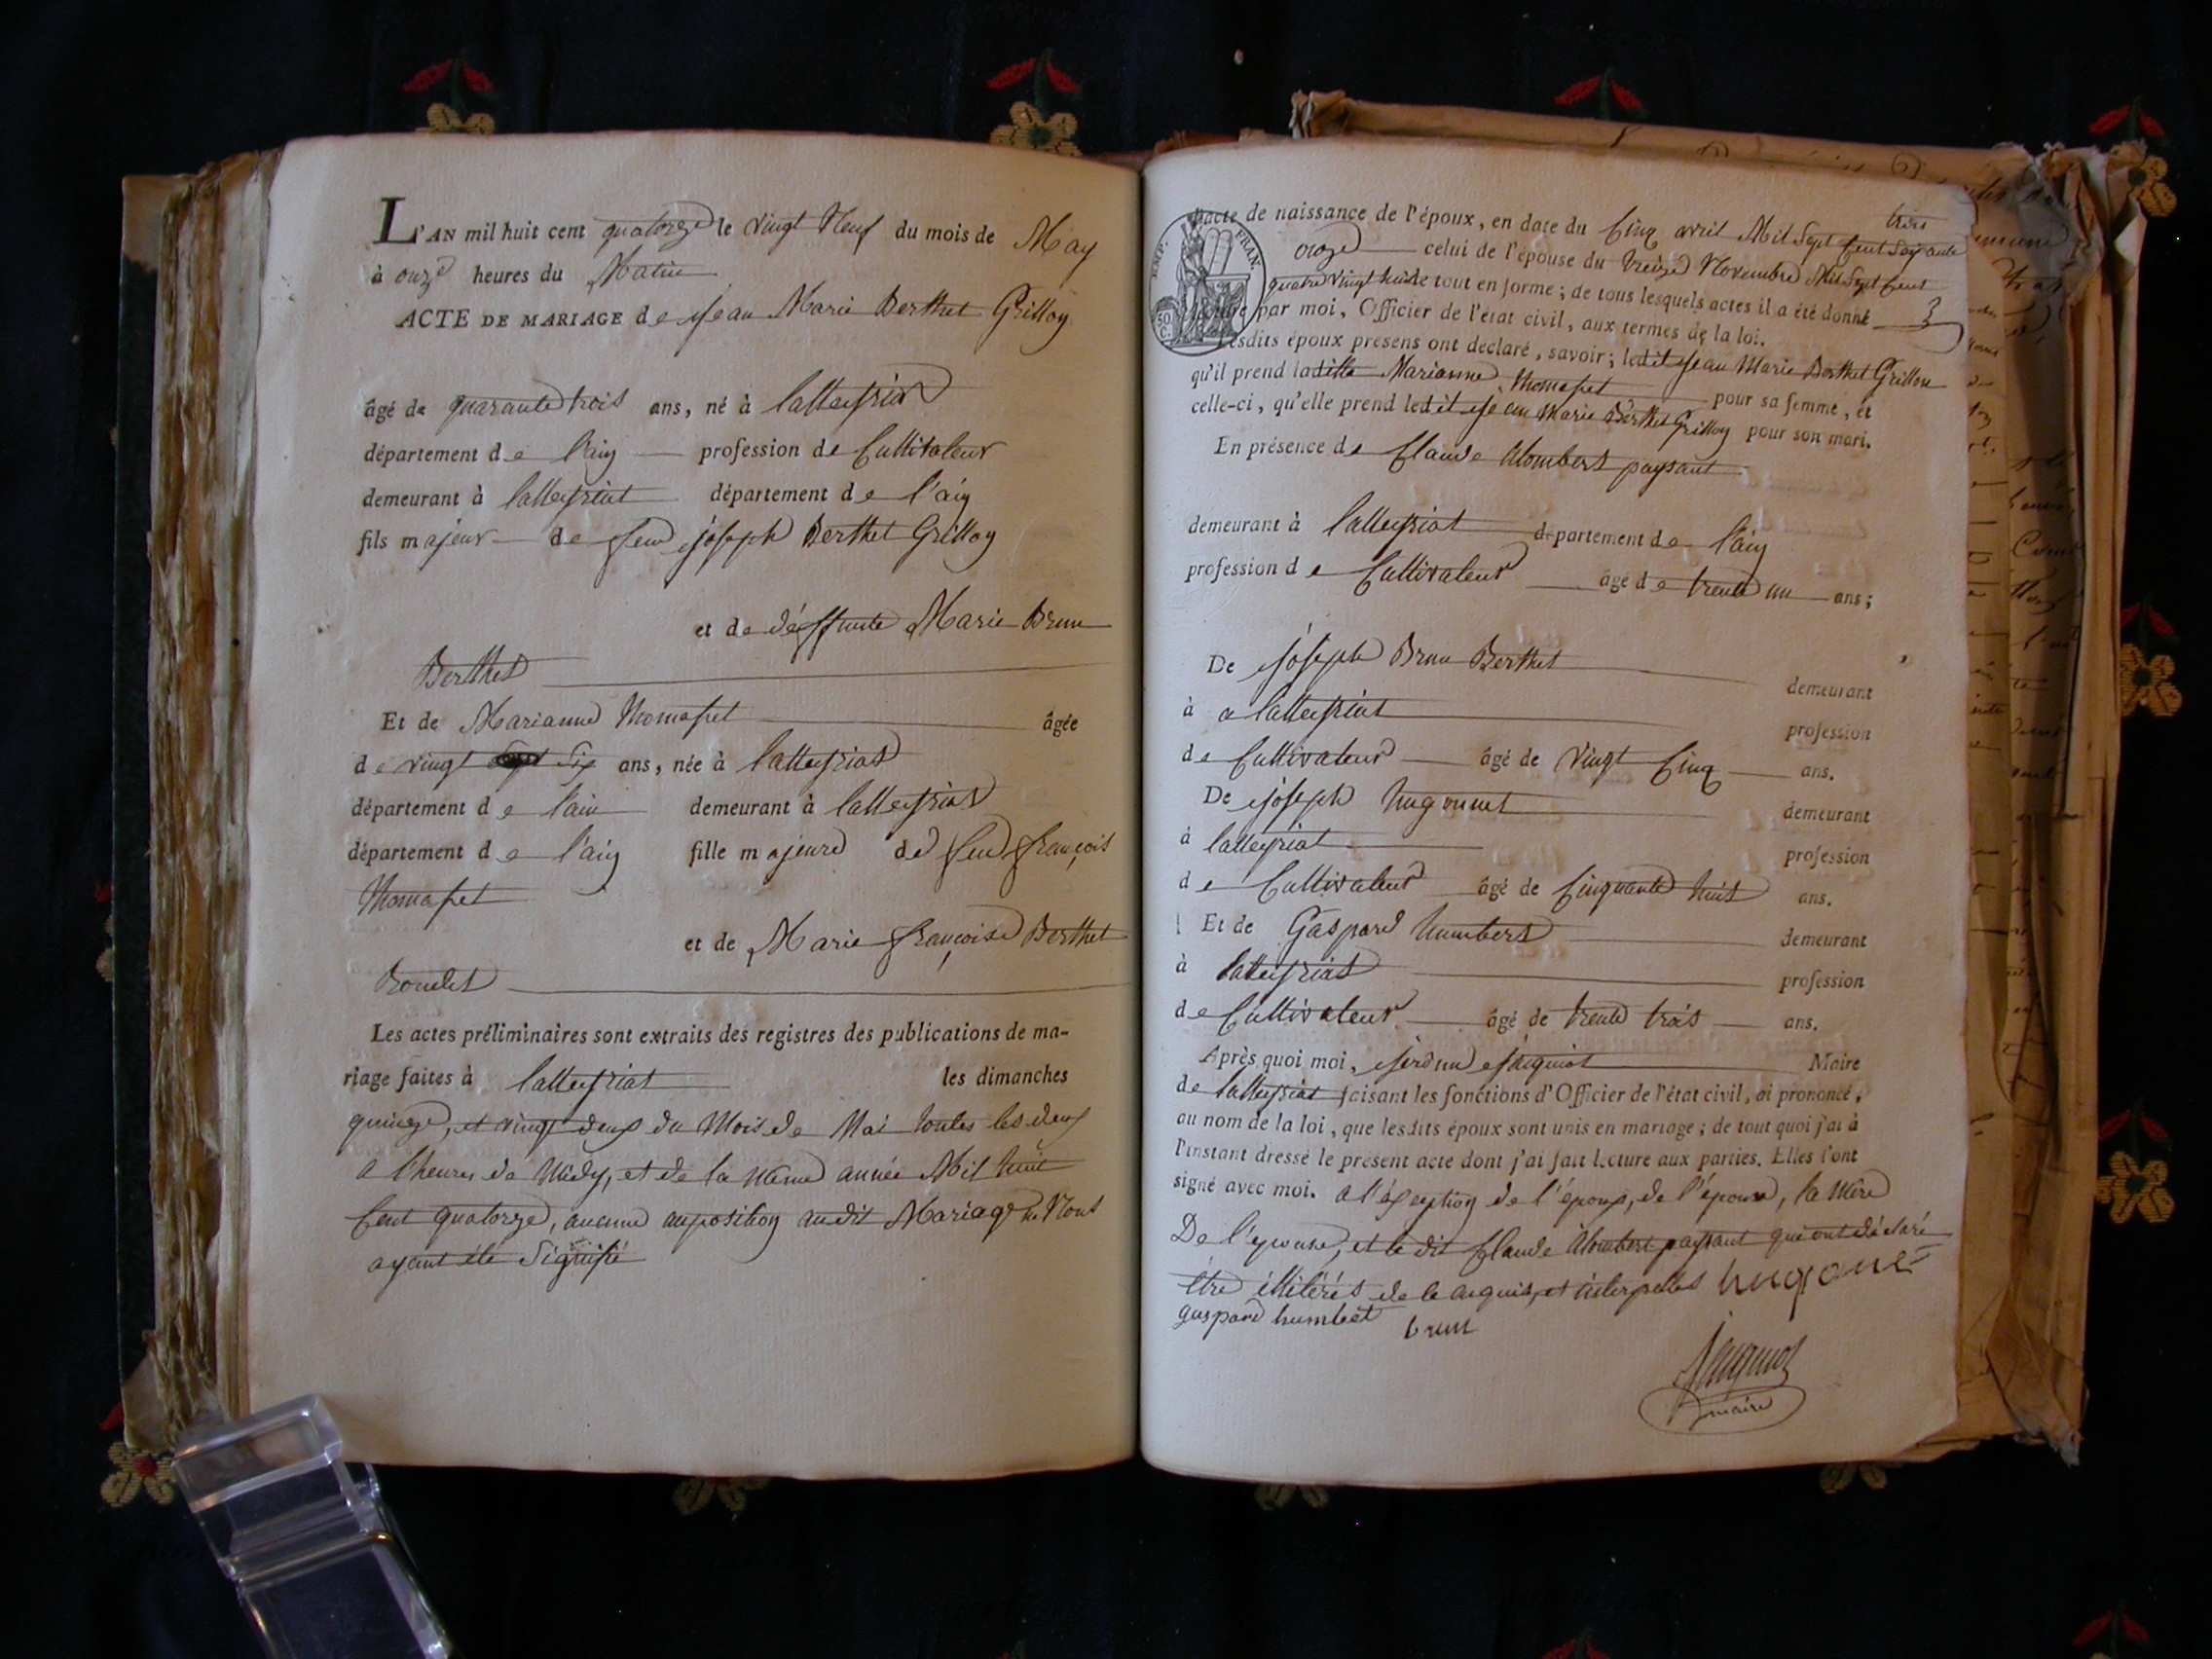 L'AN mil huit cent quatorze le vingt Neuf du mois de May
à onze heures du Matin
ACTE DE MARIAGE de Jean Marie Berthet Grillon
âgé de quarante trois ans, né à latteÿriat
département de l'ain profession de Cultivateur
demeurant à latteÿriat département de l'ain
fils majeur de feu joseph Berthet Grillon
et de déffunte Marie Brun
Berthet
Et de Marianne Thomasset âgée
de vingt Six ans, née à latteÿriat
département de l'ain demeurant à latteÿriat
département de l'ain fille majeure de feu françois
Thomasset
et de Marie françoise Berthet
Les actes préliminaires sont extraits des registres des publications de ma-
riage faites à latteÿriat les dimanches
quinze, et vingt deux du Mois de Mai toutes les deux
a l'heure de Midy, et de la même année Mil huit
Cent quatorze, aucune oposition audit Mariage ne Nous
ayant été Signifié
l'acte de naissance de l'époux, en date du Cinq avril Mil Sept Cent Soixante
onze celui de l'épouse du treize Novembre Mil Sept Cent
quatre vingt huit le tout en forme; de tous lesquels actes il a été donné
par moi, Officier de l'état civil, aux termes de la loi.
Lesdits époux présens ont déclaré, savoir; ledit Jean Marie Berthet Grillon
qu'il prend laditte Marianne Thomasset pour sa femme, et
celle-ci, qu'elle prend ledit Jean Marie Berthet Grillon pour son mari.
En présence de Claude Alombert paysant
demeurant à latteÿriat département de l'ain
profession de Cultivateur âgé de trente un ans;
De joseph Brun Berthet demeurant
à a latteÿriat profession
de Cultivateur âgé de vingt Cinq ans.
De joseph hugonnet demeurant
à latteÿriat profession
de Cultivateur âgé de Cinquante huit ans.
Et de Gaspard humbert demeurant
à latteÿriat profession
de Cultivateur âgé de trente trois ans.
Après quoi moi, Maire
de latteÿriat faisant les fonctions d'Officier de l'état civil, ai prononcé,
au nom de la loi, que lesdits époux sont unis en mariage; de tout quoi j'ai à
l'instant dressé le présent acte dont j'ai fait lecture aux parties. Elles l'ont
signé avec moi. a l'éxception de l'époux, de l'épouse, la Mère
De l'épouse, et le dit Claude Alombert paysant qui ont déclaré
être illitérés de ce requis, et interpellés hugonet
gaspard humbert brun
maire